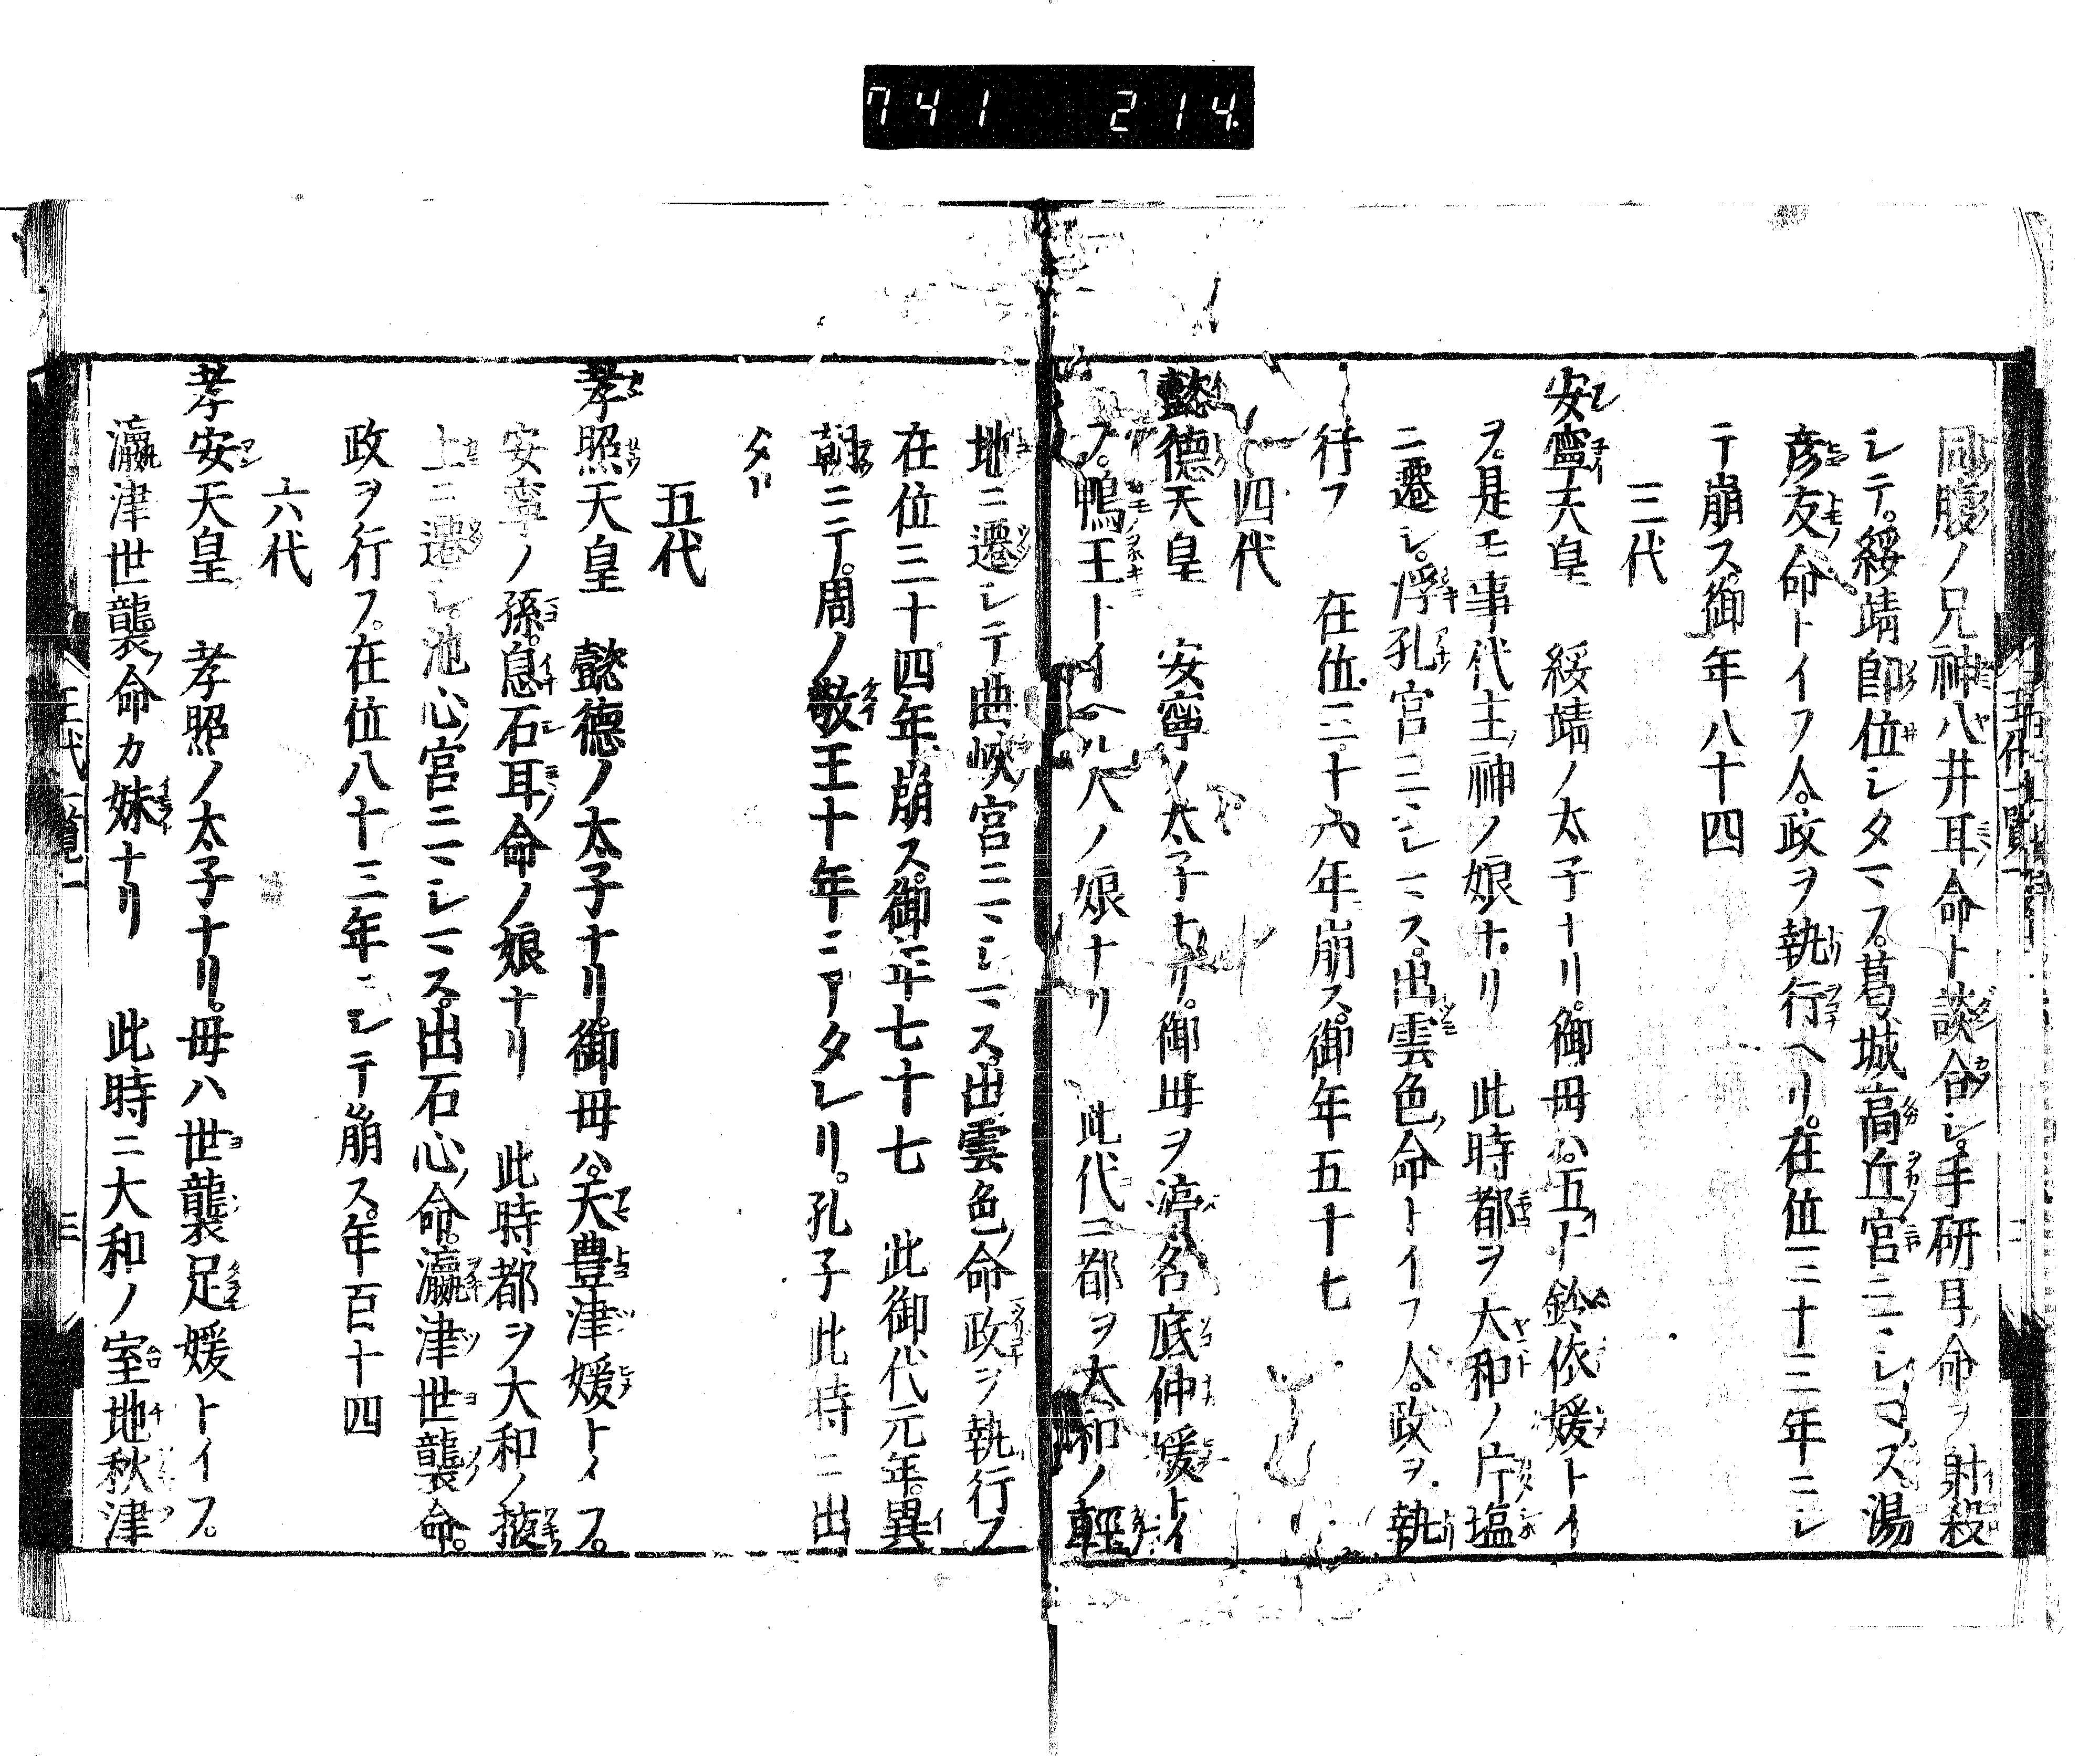 741 214
同腹ノ兄神八井耳命ト談合シ。手研耳命ヲ射殺
シテ。綏靖即位シタマフ。葛城高丘宮ニマシマス。湯
彦友命トイフ人。政ヲ執行ヘリ。在位三十三年ニシ
テ崩ス。御年八十四
三代
安寧天皇 綏靖ノ太子ナリ。御母ハ。五十鈴依媛トイ
ヲ。是モ事代主神ノ娘ナリ 此時都ヲ大和ノ片塩
ニ遷シ。浮孔宮ニマシマス。出雲色命トイフ人。政ヲ執
行フ 在位三十八年崩ス。御年五十七
四代
懿德天皇 安寧ノ太子ナリ。御母ヲ渟名底仲媛トイ
フ。鴨王トイヘル人ノ娘ナリ 此代ニ都ヲ大和ノ輕
地ニ遷シテ曲峽宮ニマシマス。出雲色命政ヲ執行フ
在位三十四年崩ス。御年七十七 此御代元年。異
朝ニテ。周ノ敬王十年ニアタレリ。孔子此時ニ出
タリ
五代
孝照天皇 懿德ノ太子ナリ。御母ハ。天豊津媛トイフ。
安寧ノ孫。息石耳命ノ娘ナリ 此時都ヲ大和ノ掖
上ニ遷シ。池心宮ニマシマス。出石心命。瀛津世襲命。
政ヲ行フ。在位八十三年ニシテ崩ス。年百十四
六代
孝安天皇 孝照ノ太子ナリ。母ハ世襲足媛トイフ。
瀛津世襲命カ妹ナリ 此時ニ大和ノ室地秋津